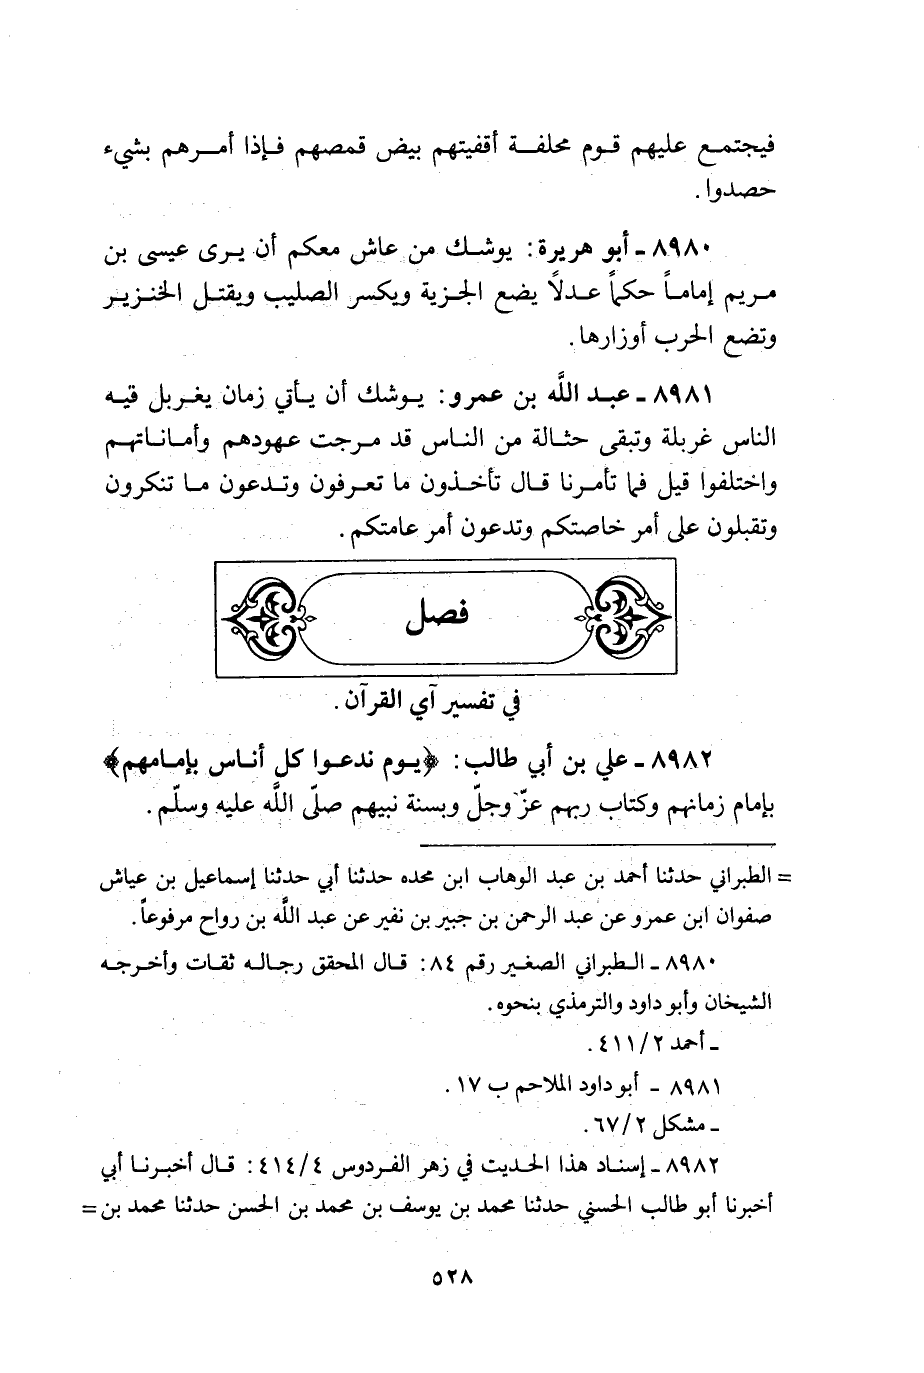 فيجتمع عليهم قوم محلفة أقفيتهم بيض قمصهم فإذا أمرهم بشيء
حصدوا .
٨٩٨٠ ـ أبو هريرة : يوشك من عاش معكم أن يرى عيسى بن
مريم إماماً حكماً عدلاً يضع الجزية ويكسر الصليب ويقتل الخنزير
وتضع الحرب أوزارها .
٨٩٨١ ـ عبد اللَّه بن عمرو : يوشك أن يأتي زمان يغربل فيه
الناس غربلة وتبقى حثالة من الناس قد مرجت عهودهم وأماناتهم
واختلفوا قيل فما تأمرنا قال تأخذون ما تعرفون وتدعون ما تنكرون
وتقبلون على أمر خاصتكم وتدعون أمر عامتكم .
فصل
في تفسير آي القرآن .
٨٩٨٢ ـ علي بن أبي طالب : ﴿يوم ندعوا كل أناس بإمامهم﴾
بإمام زمانهم وكتاب ربهم عزّ وجلّ وبسنة نبيهم صلّى اللَّه عليه وسلّم .
= الطبراني حدثنا أحمد بن عبد الوهاب ابن محده حدثنا أبي حدثنا إسماعيل بن عياش
صفوان ابن عمرو عن عبد الرحمن بن جبير بن نفير عن عبد اللَّه بن رواح مرفوعاً .
٨٩٨٠ ـ الطبراني الصغير رقم ٨٤ : قال المحقق رجاله ثقات وأخرجه
الشيخان وأبو داود والترمذي بنحوه .
ـ أحمد ٤١١/٢ .
٨٩٨١ ـ أبو داود الملاحم ب ١٧ .
ـ مشكل ٦٧/٢ .
٨٩٨٢ ـ إسناد هذا الحديث في زهر الفردوس ٤١٤/٤ : قال أخبرنا أبي
أخبرنا أبو طالب الحسني حدثنا محمد بن يوسف بن محمد بن الحسن حدثنا محمد بن =
٥٢٨